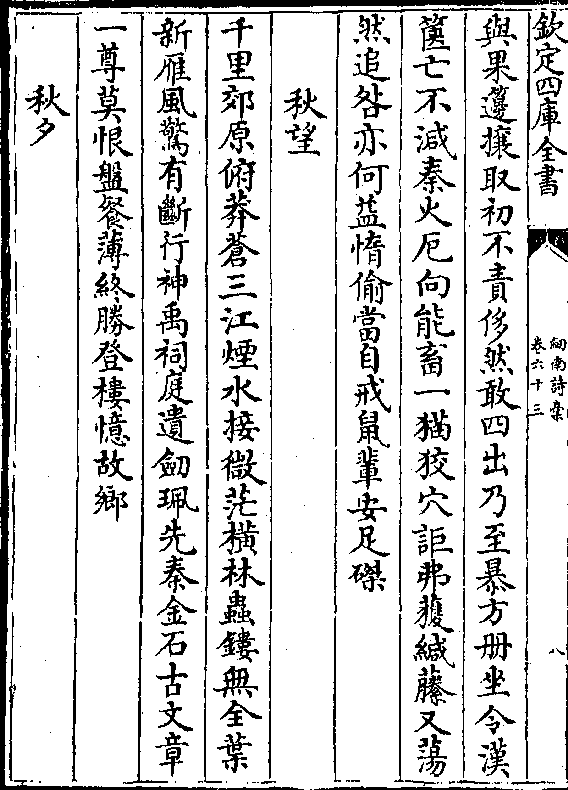 欽定四庫全書
劒南詩槀
卷六十三
八
與果籩攘取初不責侈然敢四出乃至暴方册坐令漢
篋亡不減秦火厄向能畜一猫狡穴詎弗獲緘縢又蕩
然追咎亦何益惰偷當自戒鼠輩安足磔
秋望
千里郊原俯莽蒼三江煙水接微茫横林蟲鏤無全葉
新雁風驚有斷行神禹祠庭遺劒珮先秦金石古文章
一尊莫恨盤餐薄終勝登樓憶故鄉
秋夕